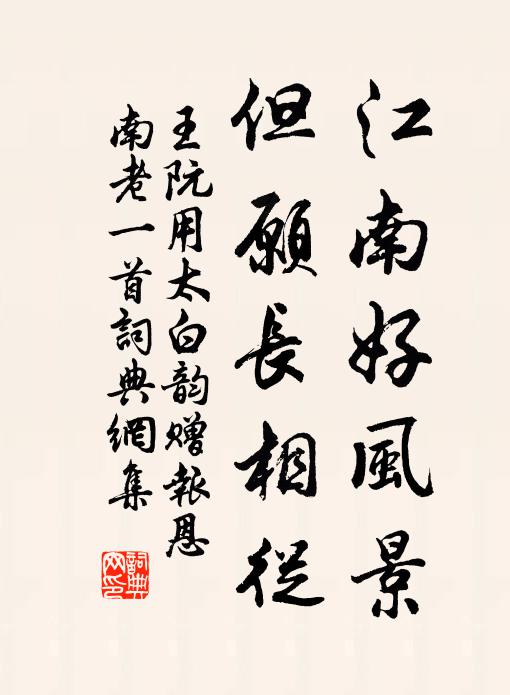 江南好風景
但願長相從
王阮用太白韵贈報恩
南老一首詞典網集
詞典网印